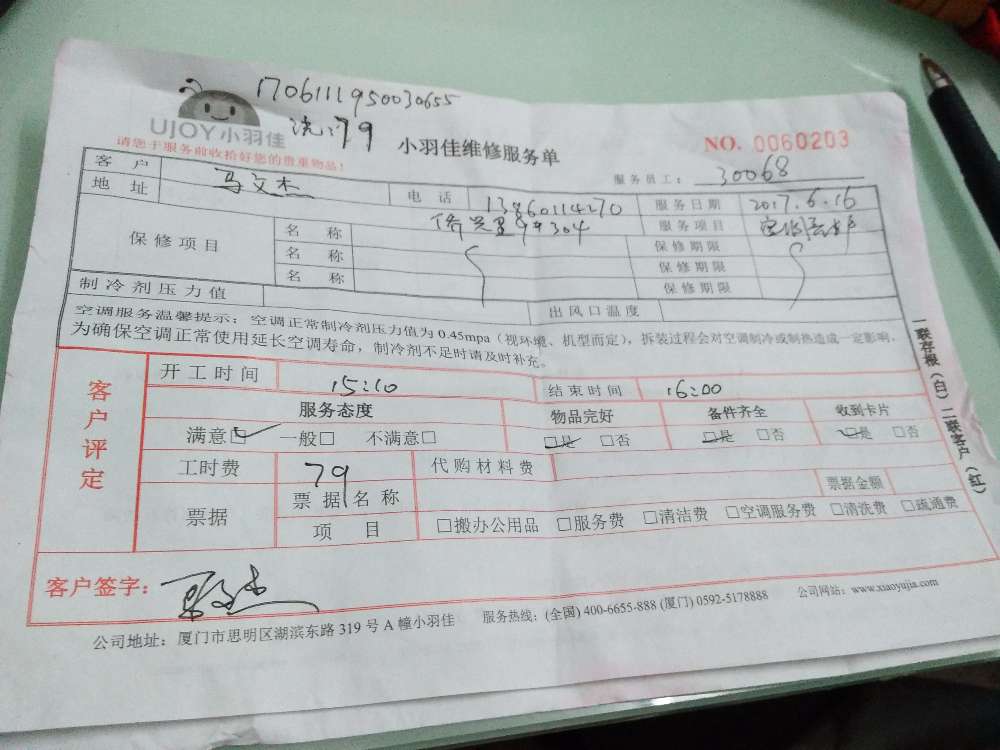 1706111950030655
UJOY小羽佳 洗:79
小羽佳维修服务单
NO. 0060203
请您于服务前收拾好您的贵重物品!
服务员工: 30068
客户 马文杰 电话 13860114270 服务日期 2017.6.16
地址 侨兴里99304 服务项目
保修项目 名称 保修期限
名称 保修期限
名称 保修期限
制冷剂压力值 出风口温度
空调服务温馨提示:空调正常制冷剂压力值为 0.45mpa(视环境、机型而定),拆装过程会对空调制冷或制热造成一定影响,
为确保空调正常使用延长空调寿命,制冷剂不足时请及时补充。
客户评定
开工时间 15:10 结束时间 16:00
服务态度 物品完好 备件齐全 收到卡片
满意☑ 一般□ 不满意□ ☑是 □否 ☑是 □否 ☑是 □否
工时费 79 代购材料费
票据 票据名称 票据金额
项目 □搬办公用品 □服务费 □清洁费 □空调服务费 □清洗费 □疏通费
客户签字: 马文杰
公司地址:厦门市思明区湖滨东路 319 号 A 幢小羽佳 服务热线:(全国) 400-6655-888 (厦门) 0592-5178888 公司网站:www.xiaoyujia.com
一联存根(白)二联客户(红)